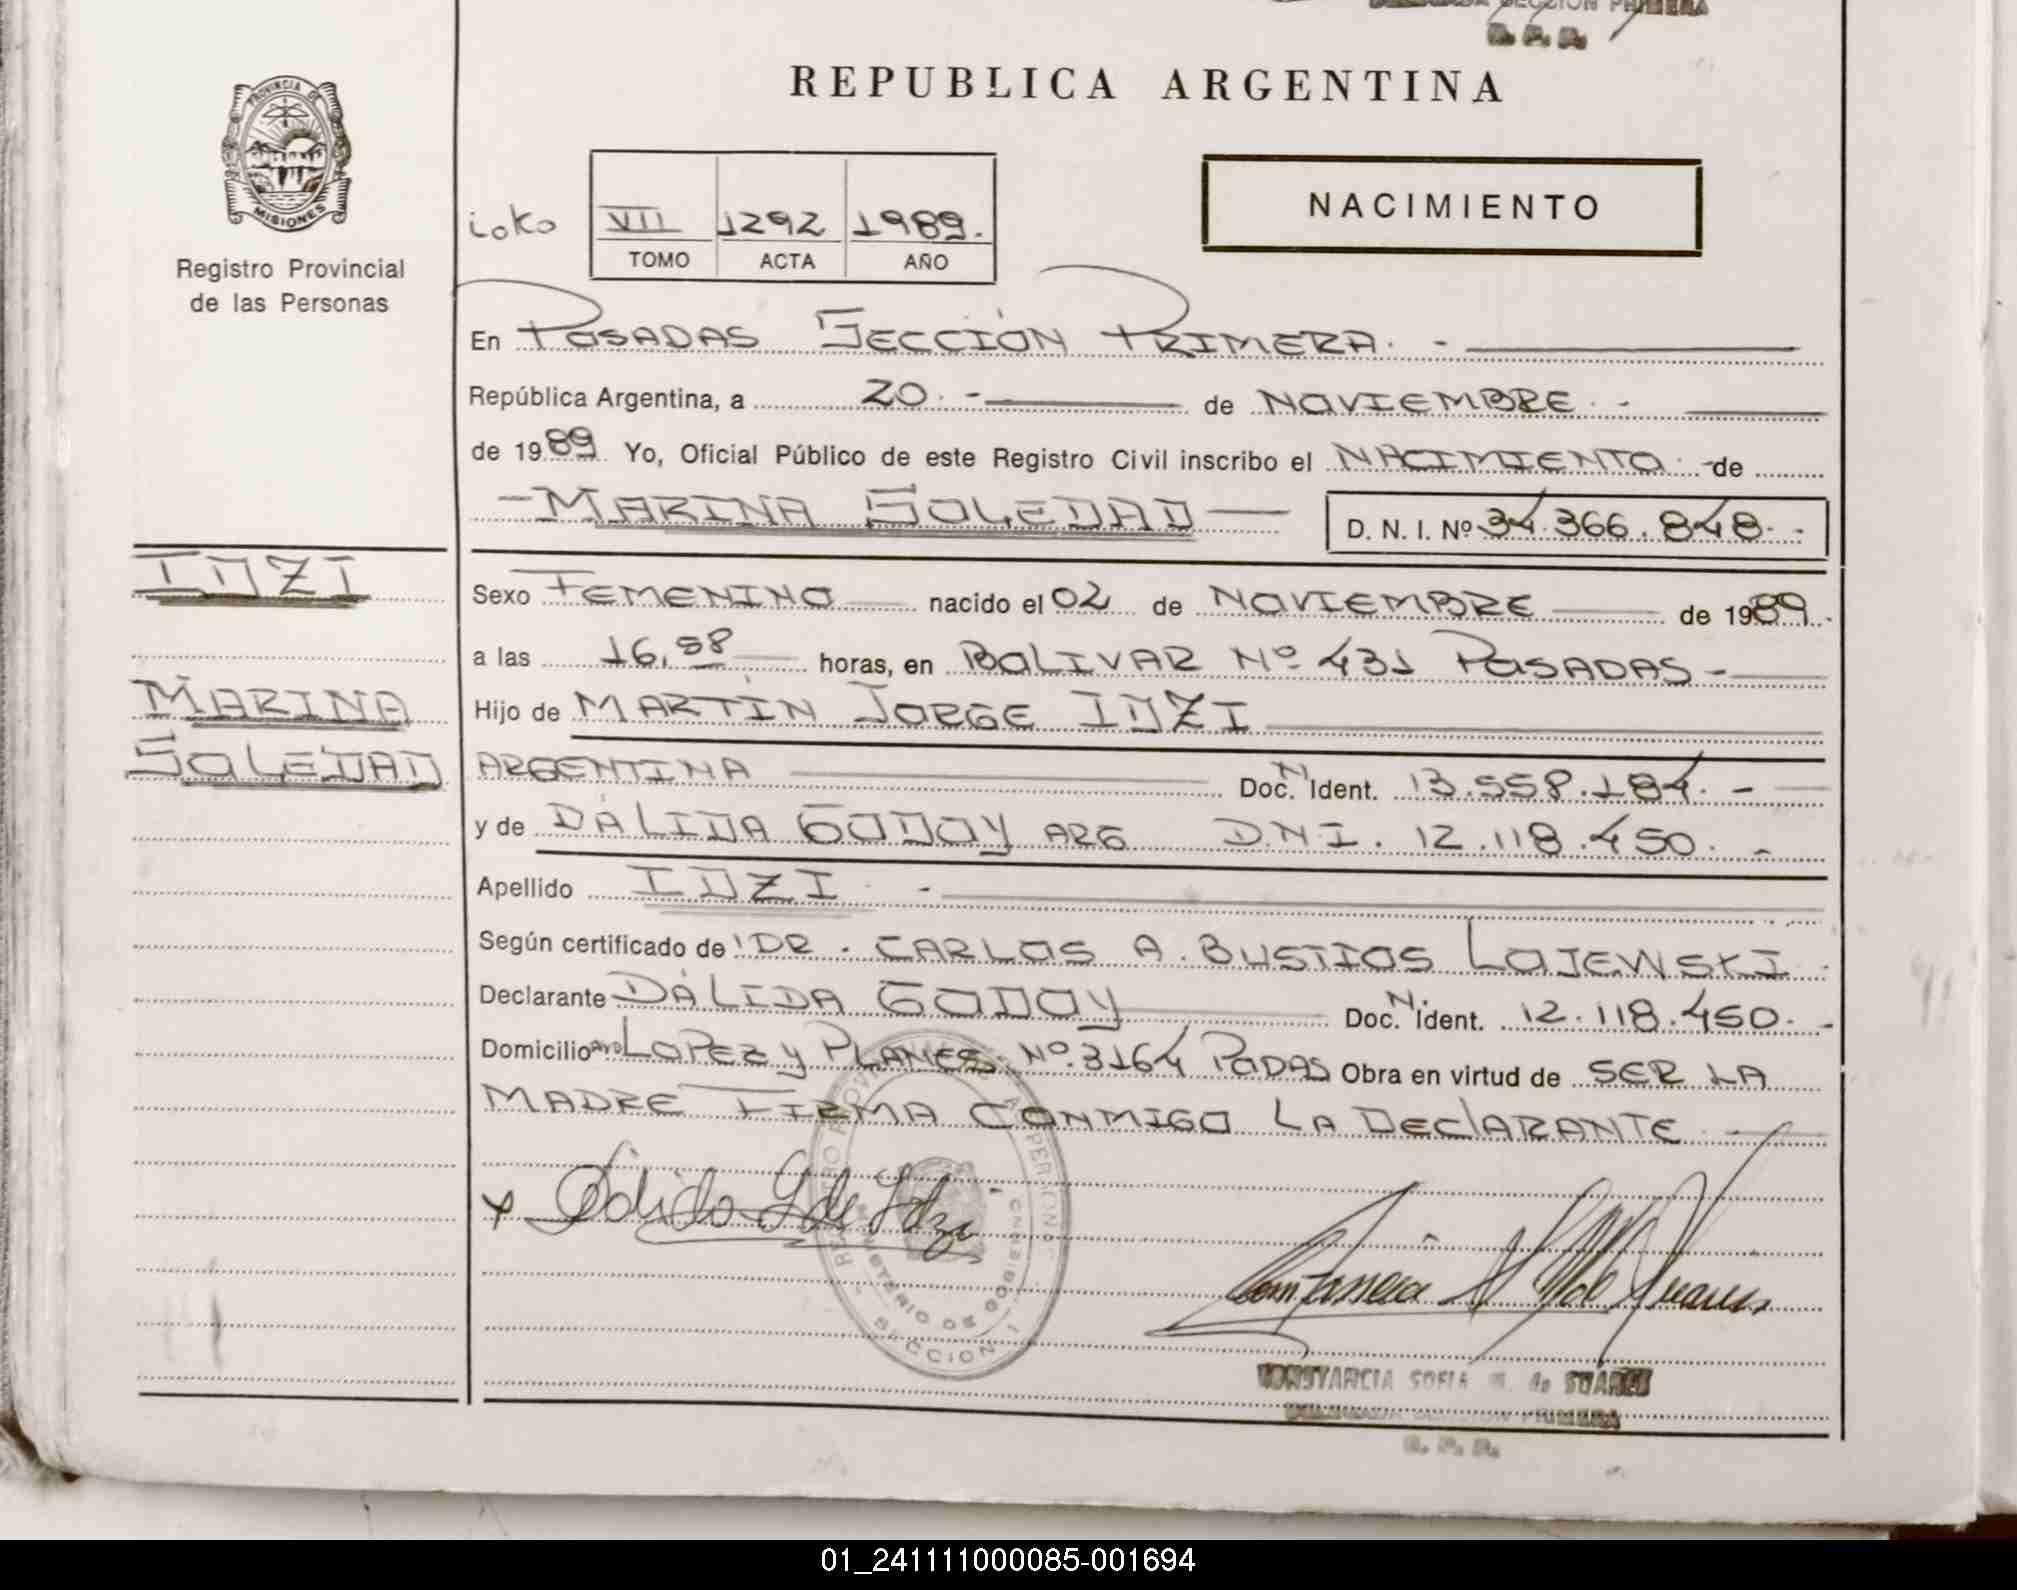 SECCION PRIMERA
R. P. P.
REPUBLICA ARGENTINA
PROVINCIA DE
MISIONES
Registro Provincial
de las Personas
NACIMIENTO
ioko
VII 1292 1989.
TOMO ACTA AÑO
En POSADAS SECCIÓN PRIMERA. -
República Argentina, a 20. - de NOVIEMBRE. -
de 1989 Yo, Oficial Público de este Registro Civil inscribo el NACIMIENTO - de
- MARINA SOLEDAD D. N. I. Nº 34.366.848. -
IDZI
MARINA
SOLEDAD
Sexo FEMENINO nacido el 02 de NOVIEMBRE de 1989.
a las 16,58 horas, en BOLIVAR Nº 431 POSADAS -
Hijo de MARTÍN JORGE IDZI
ARGENTINA Doc. N. Ident. 13.558.184. -
y de DÁLIDA GODOY ARG D.N.I. 12.118.450. -
Apellido IDZI. -
Según certificado de DR. CARLOS A. BUSTIOS LOJEWSKI
Declarante DÁLIDA GODOY Doc. N. Ident. 12.118.450. -
Domicilio AVD LOPEZ Y PLANES Nº 3164 PODAS Obra en virtud de SER LA
MADRE FIRMA CONMIGO LA DEClARANTE
x Dálida G de Idzi
MINISTERIO DE GOBIERNO
SECCION 1
CONSTANCIA SOFIA M. de SUAREZ
DELEGADA SECCION PRIMERA
R. P. P.
01_241111000085-001694